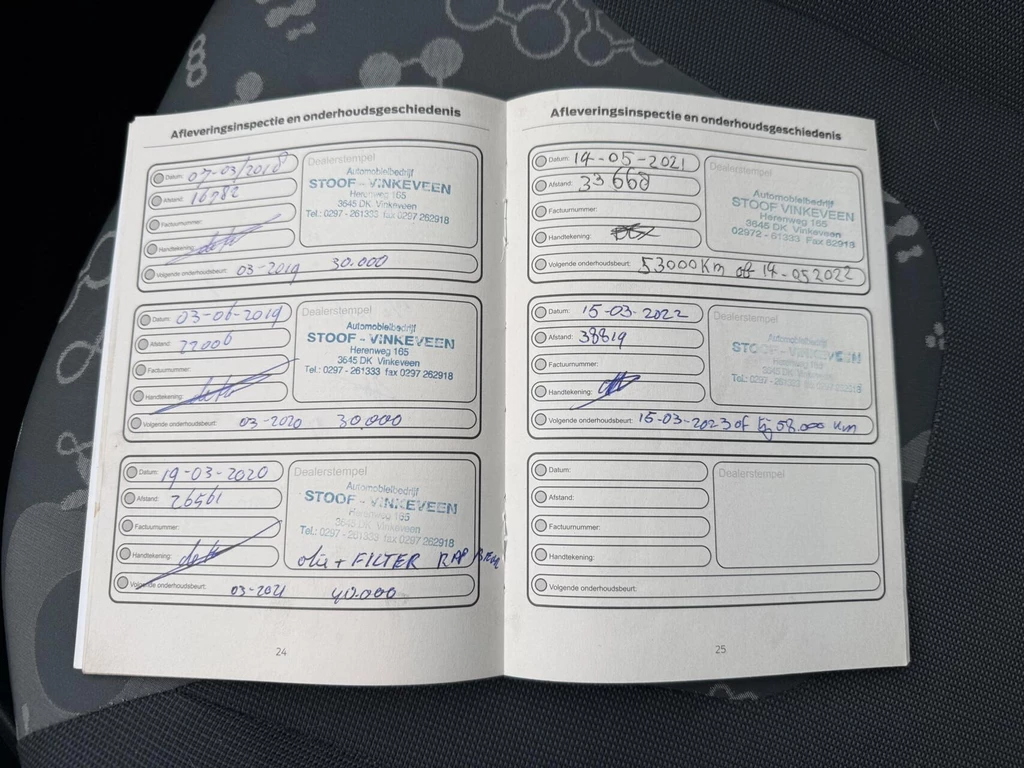 Afleveringsinspectie en onderhoudsgeschiedenis
Datum: 07-03/2018
Afstand: 16982
Factuurnummer:
Handtekening:
Volgende onderhoudsbeurt: 03-2019 30.000
Dealerstempel
Automobielbedrijf
STOOF - VINKEVEEN
Herenweg 165
3645 DK Vinkeveen
Tel.: 0297 - 261333 fax 0297 262918
Datum: 03-06-2019
Afstand: 22006
Factuurnummer:
Handtekening:
Volgende onderhoudsbeurt: 03-2020 30.000
Dealerstempel
Automobielbedrijf
STOOF - VINKEVEEN
Herenweg 165
3645 DK Vinkeveen
Tel.: 0297 - 261333 fax 0297 262918
Datum: 19-03-2020
Afstand: 26561
Factuurnummer:
Handtekening:
Volgende onderhoudsbeurt: 03-2021 40.000
Dealerstempel
Automobielbedrijf
STOOF - VINKEVEEN
Herenweg 165
3645 DK Vinkeveen
Tel.: 0297 - 261333 fax 0297 262918
olie + FILTER
24
Afleveringsinspectie en onderhoudsgeschiedenis
Datum: 14-05-2021
Afstand: 33668
Factuurnummer:
Handtekening:
Volgende onderhoudsbeurt: 53000 Km of 14-05 2022
Dealerstempel
Automobielbedrijf
STOOF VINKEVEEN
Herenweg 165
3645 DK Vinkeveen
02972 - 61333 Fax 62918
Datum: 15-03-2022
Afstand: 38819
Factuurnummer:
Handtekening:
Volgende onderhoudsbeurt: 15-03-2023 of bij 58.000 km
Dealerstempel
Automobielbedrijf
STOOF - VINKEVEEN
Herenweg 165
3645 DK Vinkeveen
Tel.: 0297 - 261333 fax 0297 262918
Datum:
Afstand:
Factuurnummer:
Handtekening:
Volgende onderhoudsbeurt:
Dealerstempel
25